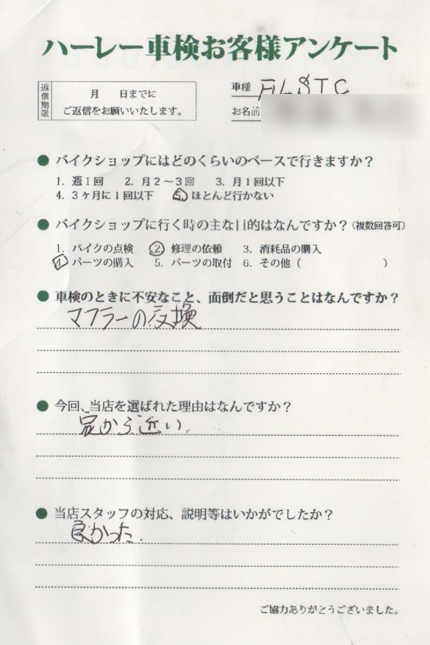 ハーレー車検お客様アンケート
返信期限
月 日までに
ご返信をお願いいたします。
車種 FLSTC
お名前
● バイクショップにはどのくらいのペースで行きますか？
1. 週1回 2. 月2～3回 3. 月1回以下
4. 3ヶ月に1回以下 5. ほとんど行かない
● バイクショップに行く時の主な目的はなんですか？(複数回答可)
1. バイクの点検 2. 修理の依頼 3. 消耗品の購入
4. パーツの購入 5. パーツの取付 6. その他（ ）
● 車検のときに不安なこと、面倒だと思うことはなんですか？
マフラーの交換
● 今回、当店を選ばれた理由はなんですか？
家から近い。
● 当店スタッフの対応、説明等はいかがでしたか？
良かった。
ご協力ありがとうございました。